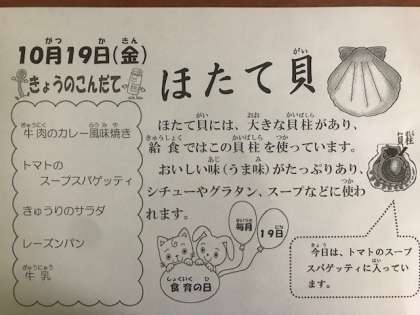 10月19日(金)
きょうのこんだて
牛肉のカレー風味焼き
トマトの
スープスパゲッティ
きゅうりのサラダ
レーズンパン
牛乳
ほたて貝
ほたて貝には、大きな貝柱があり、
給食ではこの貝柱を使っています。
おいしい味(うま味)がたっぷりあり、
シチューやグラタン、スープなどに使わ
れます。
貝柱
毎月
19日
食育の日
今日は、トマトのスープ
スパゲッティに入ってい
ます。